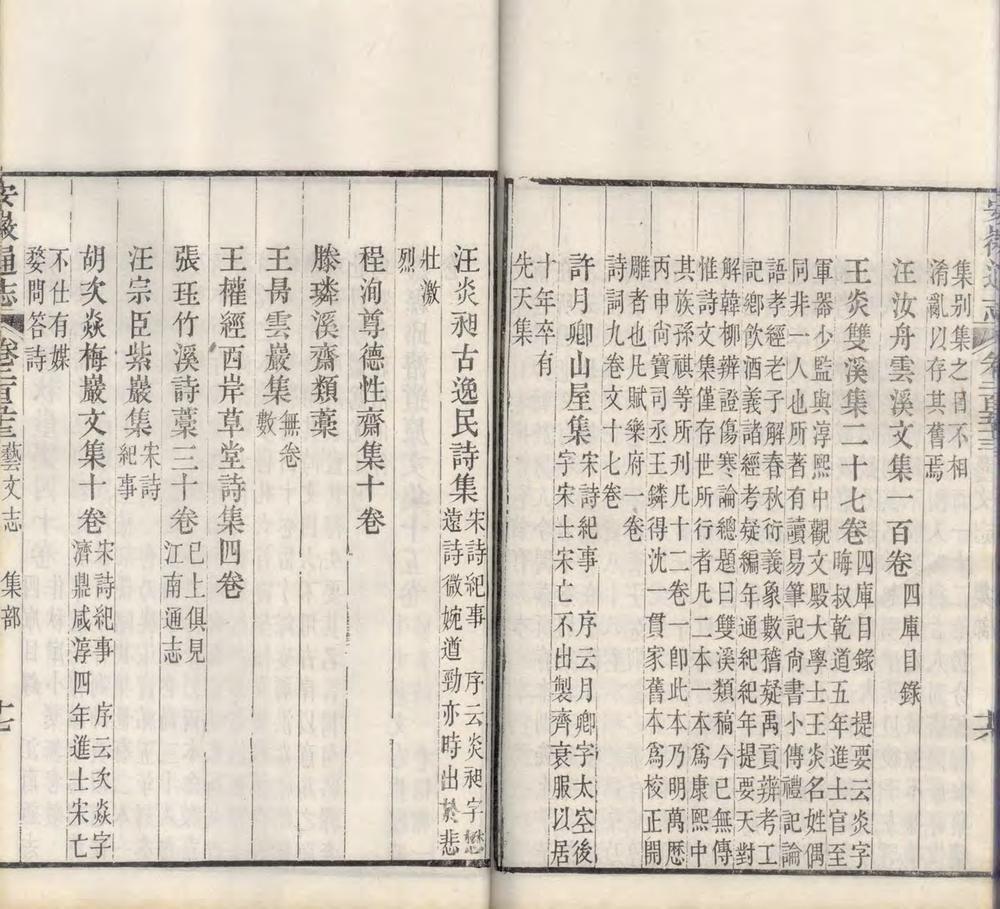 集别集之目不相
淆亂以存其舊焉
汪汝舟雲溪文集一百卷 四庫目錄
王炎雙溪集二十七卷 四庫目錄 提要云炎字
晦叔乾道五年進士官至
軍器少監與淳熙中觀文殿大學士王炎名姓偶
同非一人也所著有讀易筆記尚書小傳禮記論
語孝經老子解春秋衍義象數稽疑禹貢辨考工
記鄉飲酒義諸經考疑編年通紀紀年提要天對
解韓柳辨證傷寒論總題曰雙溪類稿今已無傳
惟詩文集僅存世所行者凡二本一本爲康熙中
其族孫祺等所刊凡十二卷一卽此本乃明萬厯
丙申尙寶司丞王鏻得沈一貫家舊本爲校正開
雕者也凡賦樂府一卷
詩詞九卷文十七卷
許月卿山屋集 宋詩紀事 序云月卿字太空後
字宋士宋亡不出製齊衰服以居
十年卒有
先天集
安徽通志
汪炎昶古逸民詩集 宋詩紀事 序云炎昶字懋
遠詩微婉遒勁亦時出於悲
壯激
烈
程洵尊德性齋集十卷
滕璘溪齋類藁
王昺雲巖集 無卷
數
王權經西岸草堂詩集四卷
張珏竹溪詩藁三十卷 已上俱見
江南通志
汪宗臣紫巖集 宋詩
紀事
胡次焱梅巖文集十卷 宋詩紀事 序云次焱字
濟鼎咸淳四年進士宋亡
不仕有媒
嫠問答詩
安徽通志 藝文志 集部 十七